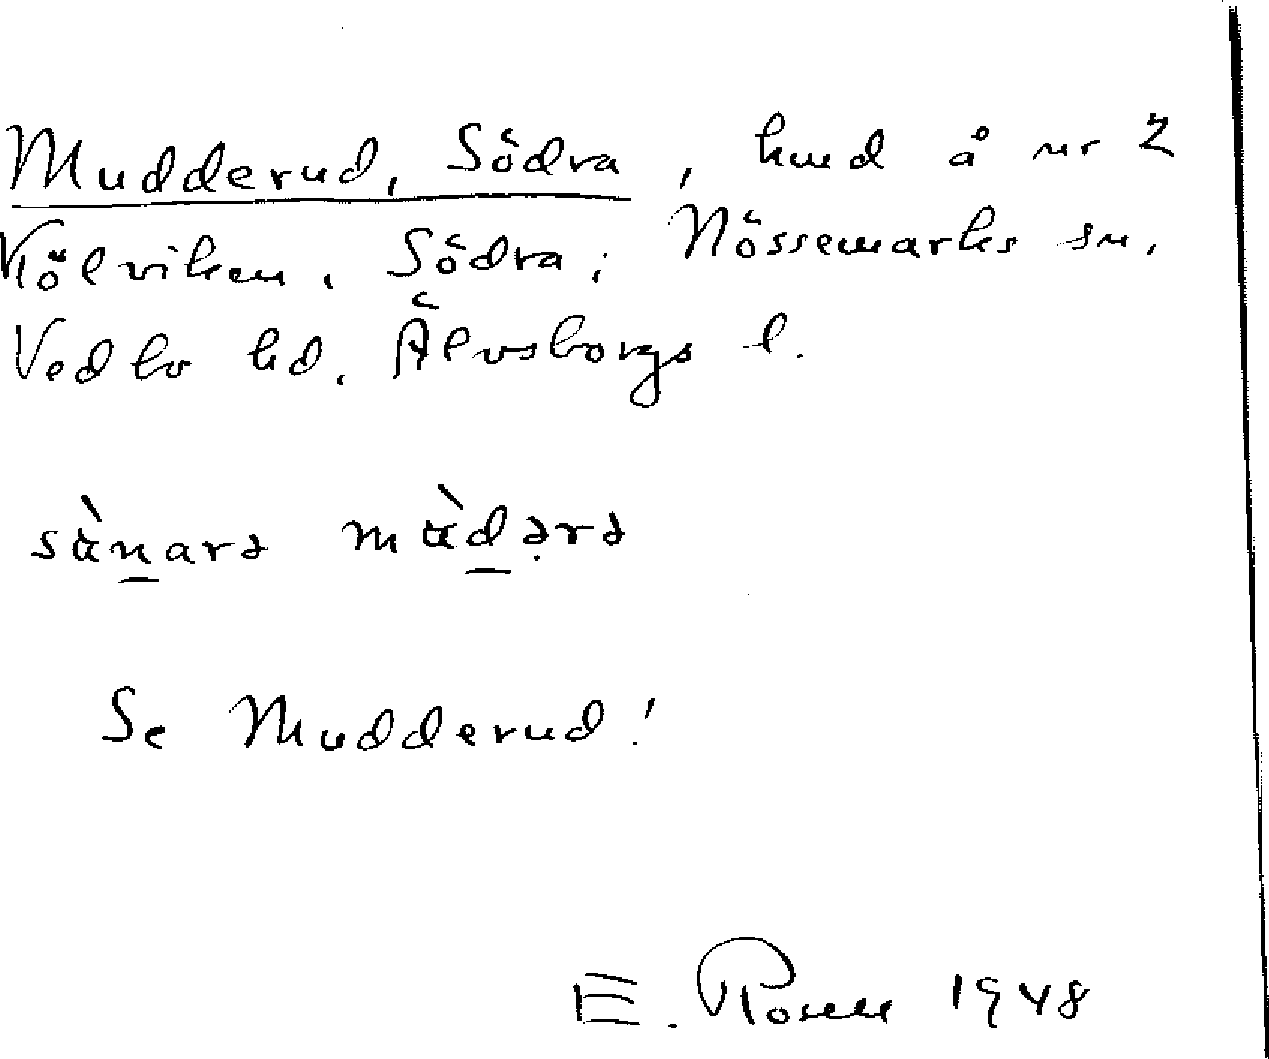 Mudderud, Södra, hmd å nr 2
Kölviken, Södra; Nössemarks sn.
Vedbo hd. Älvsborgs l.
Se Mudderud!
E. Rosell 1948